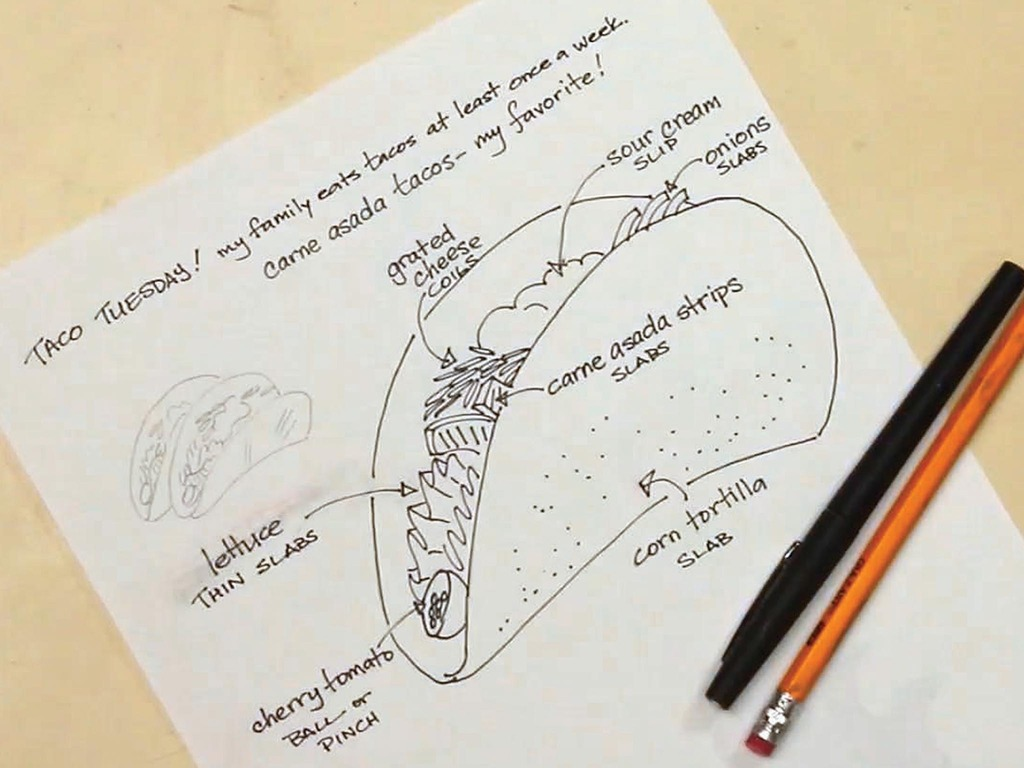 TACO TUESDAY! my family eats tacos at least once a week.
carne asada tacos- my favorite!
sour cream
SLIP
onions
SLABS
grated
cheese
COILS
carne asada strips
SLABS
lettuce
THIN SLABS
corn tortilla
SLAB
cherry tomato
BALL or
PINCH